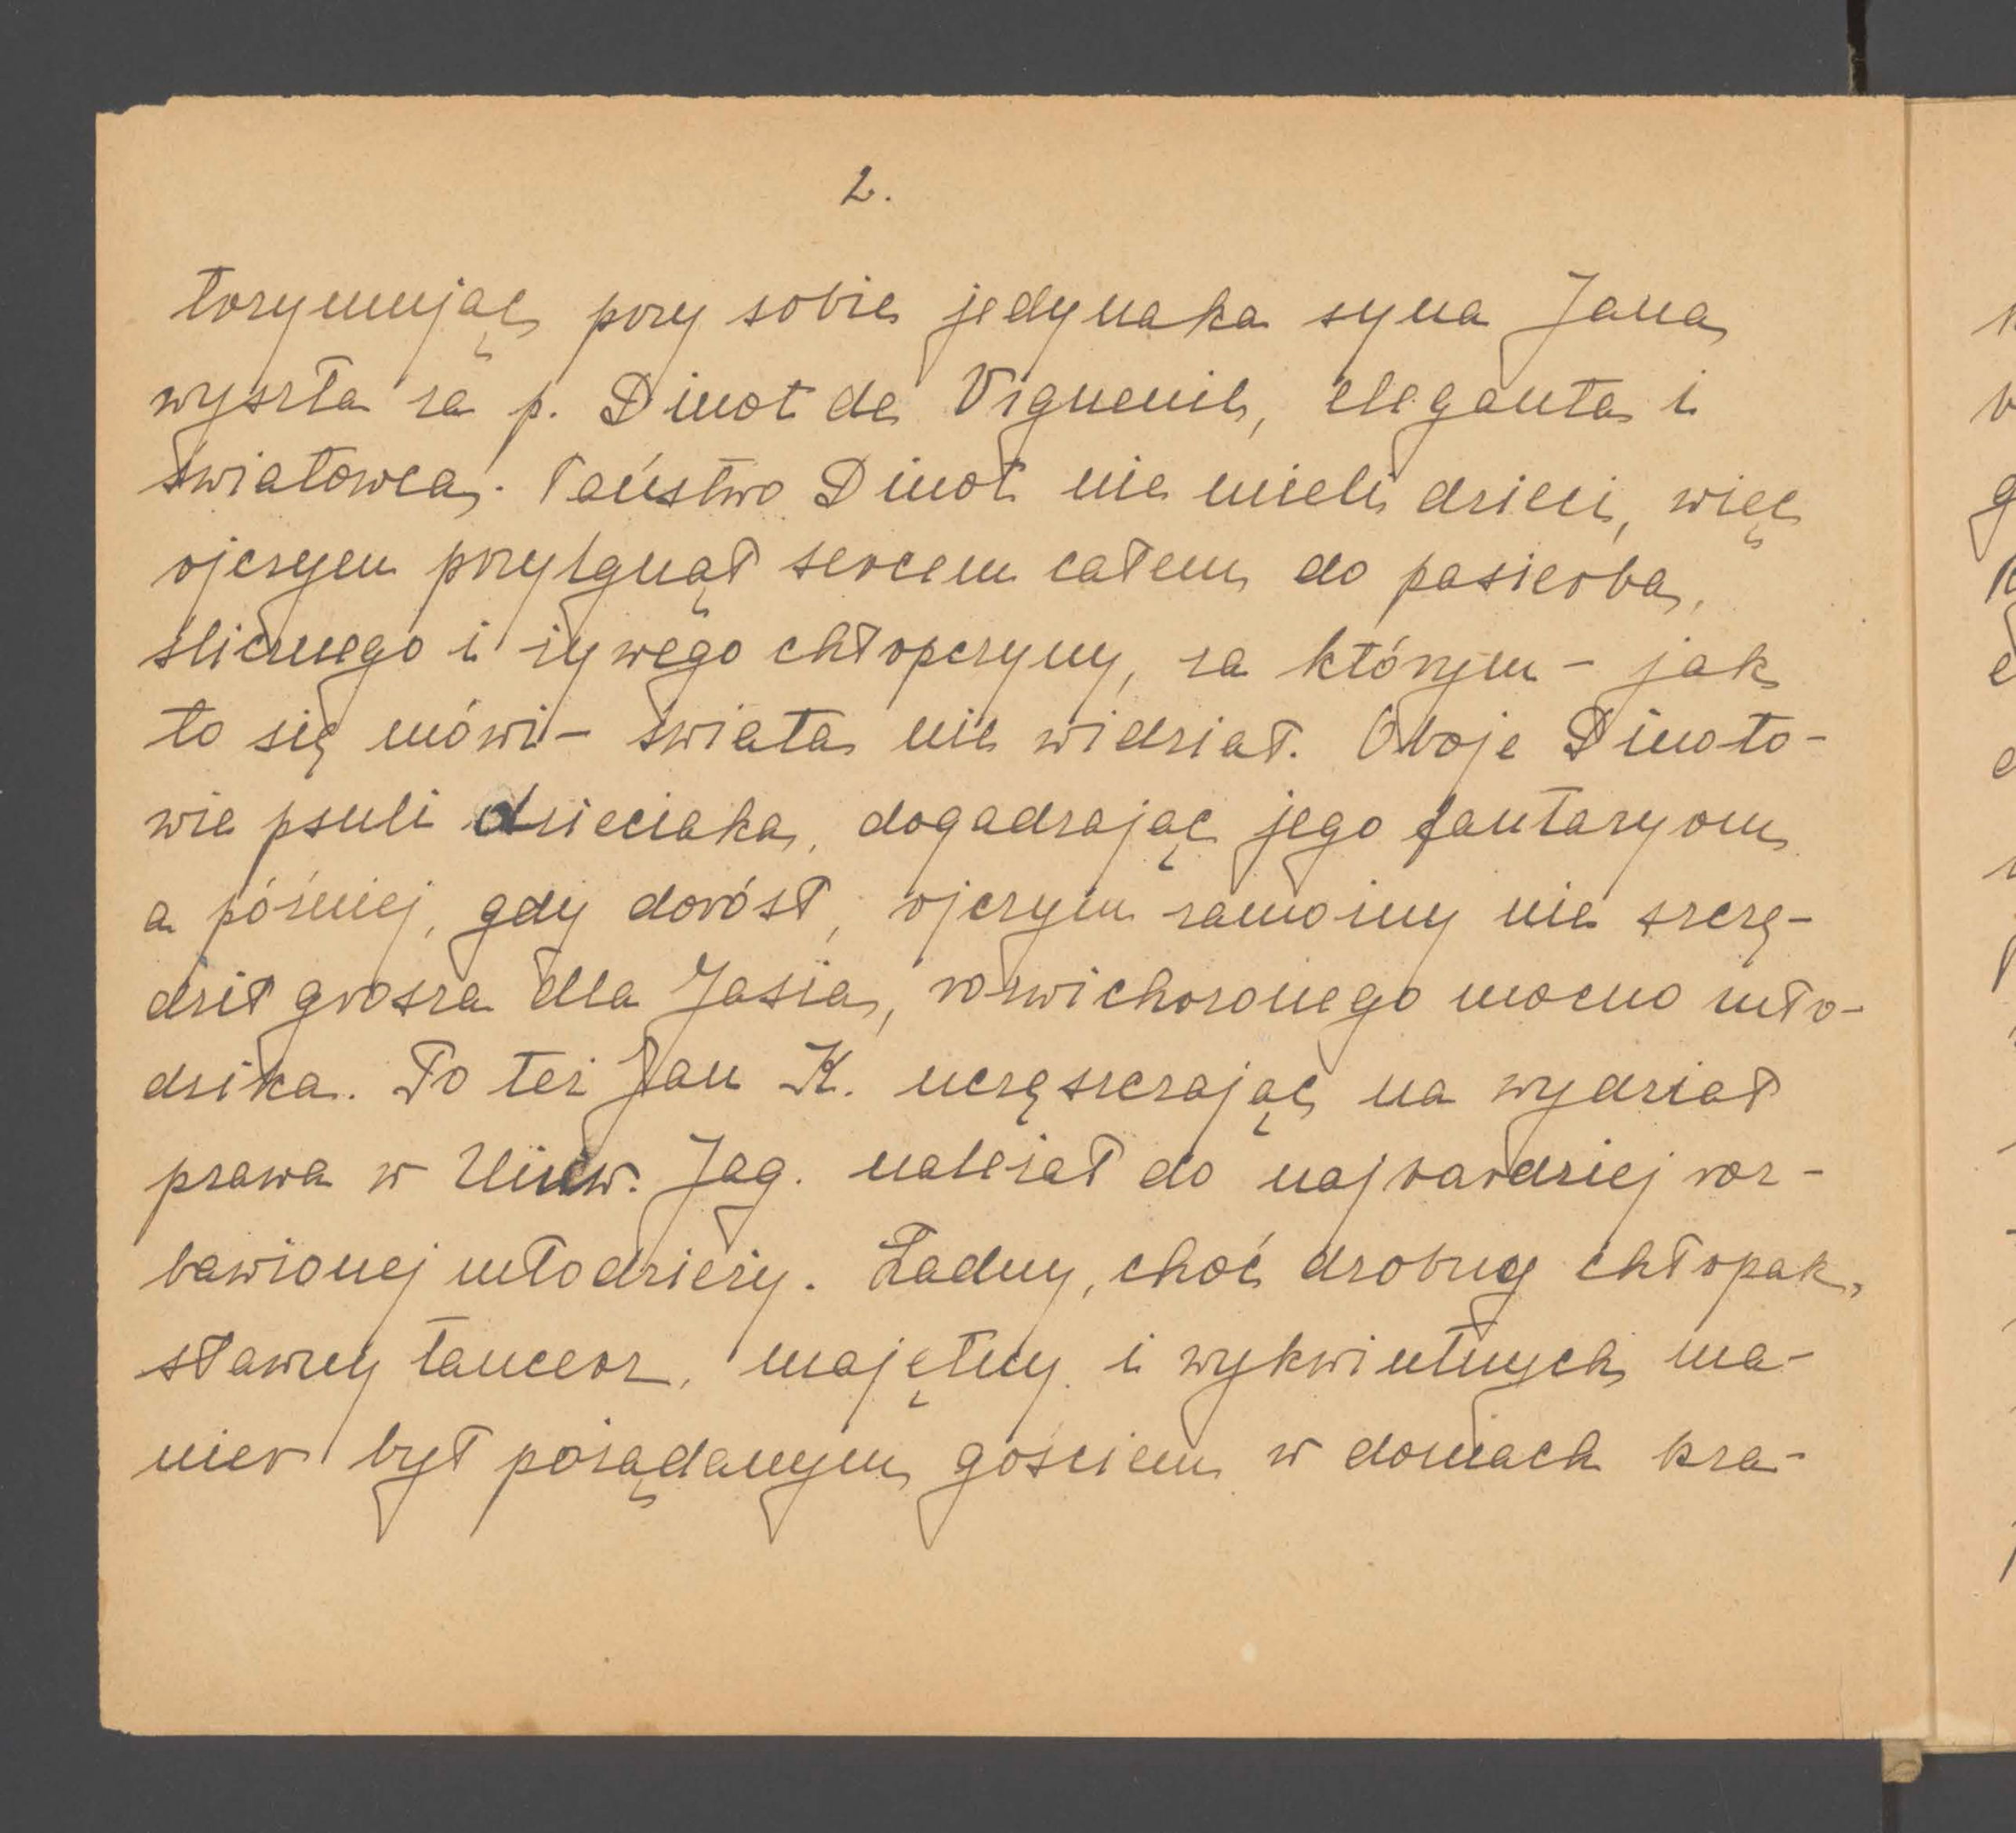 2.
trzymując przy sobie jedynaka syna Jana
wyszła za p. Dinot de Vignenil, eleganta i
światowca. Państwo Dinot nie mieli dzieci, więc
ojczym przylgnął sercem całem do pasierba,
ślicznego i żywego chłopczyny, za którym - jak
to się mówi - świata nie widział. Oboje Dinoto-
wie psuli dzieciaka, dogadzając jego fantazyom
a później, gdy dorósł, ojczym zamożny nie szczę-
dził grosza dla Jasia, rozwichrzonego mocno mło-
dzika. To też Jan K. uczęszczając na wydział
prawa w Uniw. Jag. należał do najbardziej roz-
bawionej młodzieży. Ładny, choć drobny chłopak,
sławny tancerz, majętny i wykwintnych ma-
nier był pożądanym gościem w domach kra-